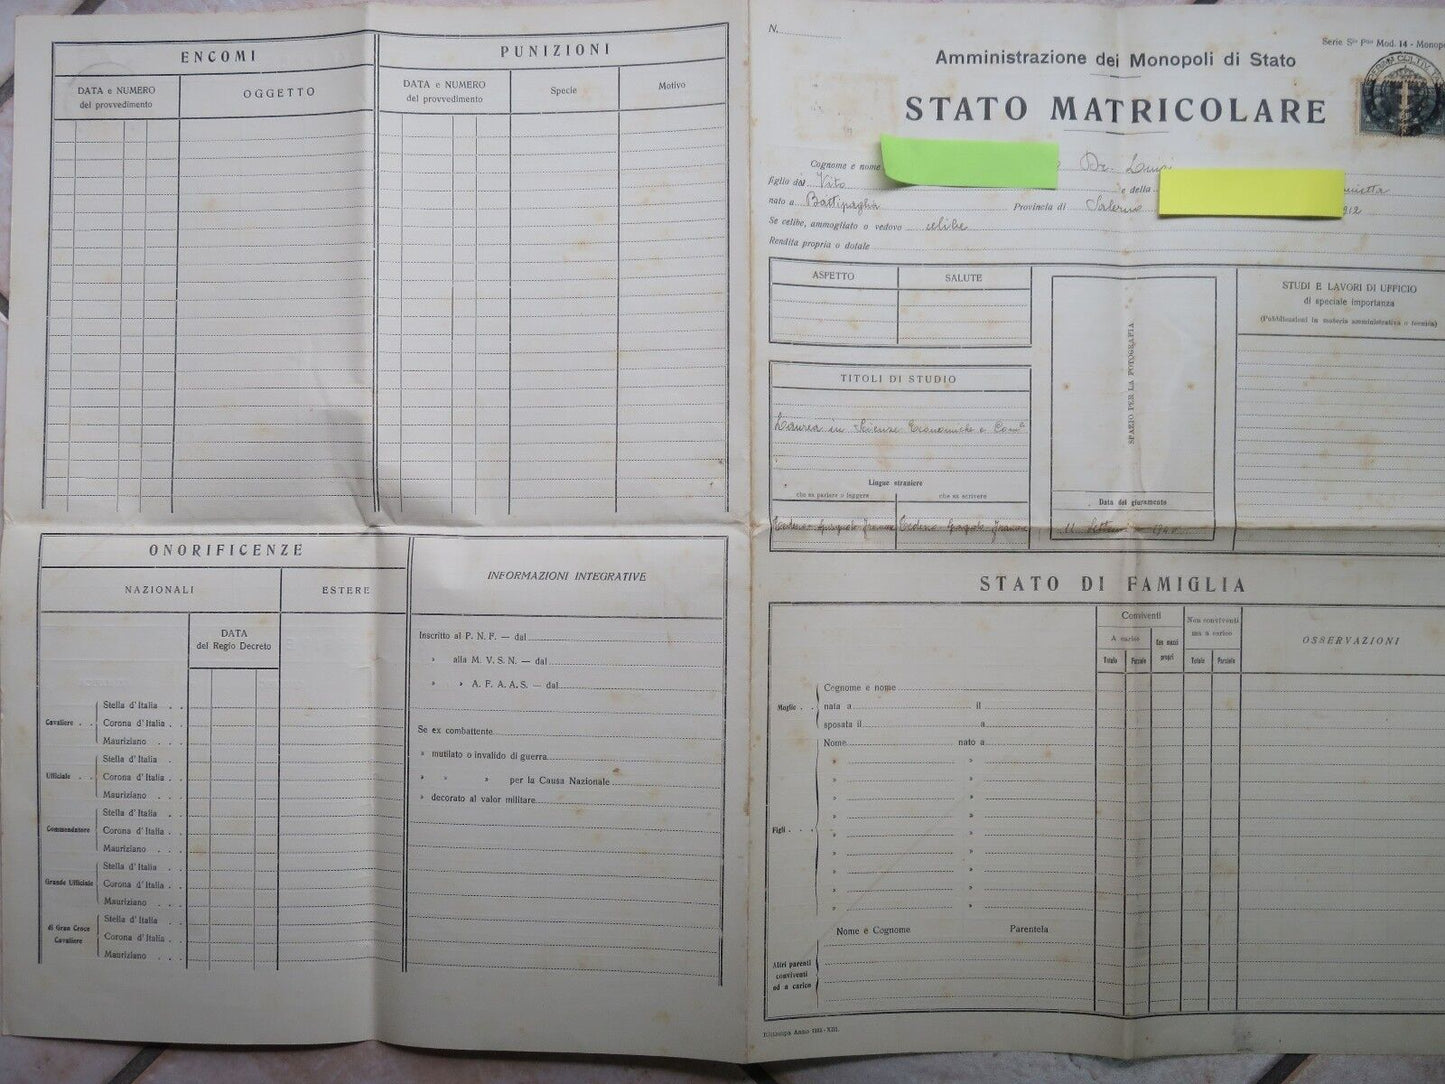 ENCOMI
PUNIZIONI
DATA e NUMERO
del provvedimento
OGGETTO
DATA e NUMERO
del provvedimento
Specie
Motivo
ONORIFICENZE
NAZIONALI
ESTERE
DATA
del Regio Decreto
Cavaliere . .
Stella d'Italia . .
Corona d'Italia .
Mauriziano . . .
Ufficiale . .
Stella d'Italia . .
Corona d'Italia . .
Mauriziano . . .
Commendatore
Stella d'Italia . .
Corona d'Italia . .
Mauriziano . . .
Grande Ufficiale
Stella d'Italia . .
Corona d'Italia . .
Mauriziano . . .
di Gran Croce
Cavaliere
Stella d'Italia . .
Corona d'Italia . .
Mauriziano . . .
INFORMAZIONI INTEGRATIVE
Inscritto al P. N. F. — dal
» alla M. V. S. N. — dal
» » A. F. A. A. S. — dal
Se ex combattente
» mutilato o invalido di guerra
» » » per la Causa Nazionale
» decorato al valor militare
N.
Serie Sta Pne Mod. 14 - Monop
Amministrazione dei Monopoli di Stato
STATO MATRICOLARE
Cognome e nome Dr. Luigi
figlio del Vito e della
nato a Battipaglia Provincia di Salerno 912
Se celibe, ammogliato o vedovo celibe
Rendita propria o dotale
ASPETTO
SALUTE
TITOLI DI STUDIO
Laurea in Scienze Economiche e Com.
Lingue straniere
che sa parlare o leggere
che sa scrivere
Tedesco Spagnolo Francese
Tedesco Spagnolo Francese
SPAZIO PER LA FOTOGRAFIA
Data del giuramento
11 Settem 1940
STUDI E LAVORI DI UFFICIO
di speciale importanza
(Pubblicazioni in materia amministrativa o tecnica)
STATO DI FAMIGLIA
Conviventi
A carico
Con mezzi
propri
Totale
Parziale
Non conviventi
ma a carico
Totale
Parziale
OSSERVAZIONI
Moglie . .
Cognome e nome
nata a il
sposata il a
Figli . . .
Nome nato a
» »
» »
» »
» »
» »
» »
» »
» »
» »
Nome e Cognome
Parentela
Altri parenti
conviventi
ed a carico